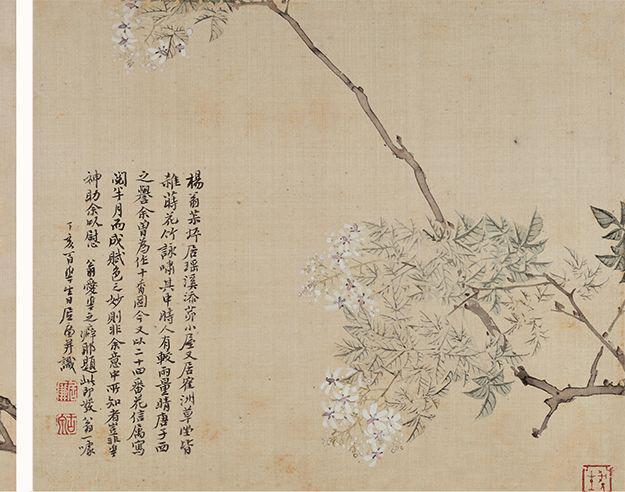 楊翁菉坪居瑶溪添茆小屋又居寉洲草堂皆
雜蒔花竹詠嘯其中時人有較雨量晴唐子西
之譽余曾為作十香圖今又以二十四番花信属寫
閱半月而成賦色之妙則非余意中所知者豈非華
神助余以慰 翁愛華之癖耶題此即發翁一噱
丁亥百華生日居廉并識